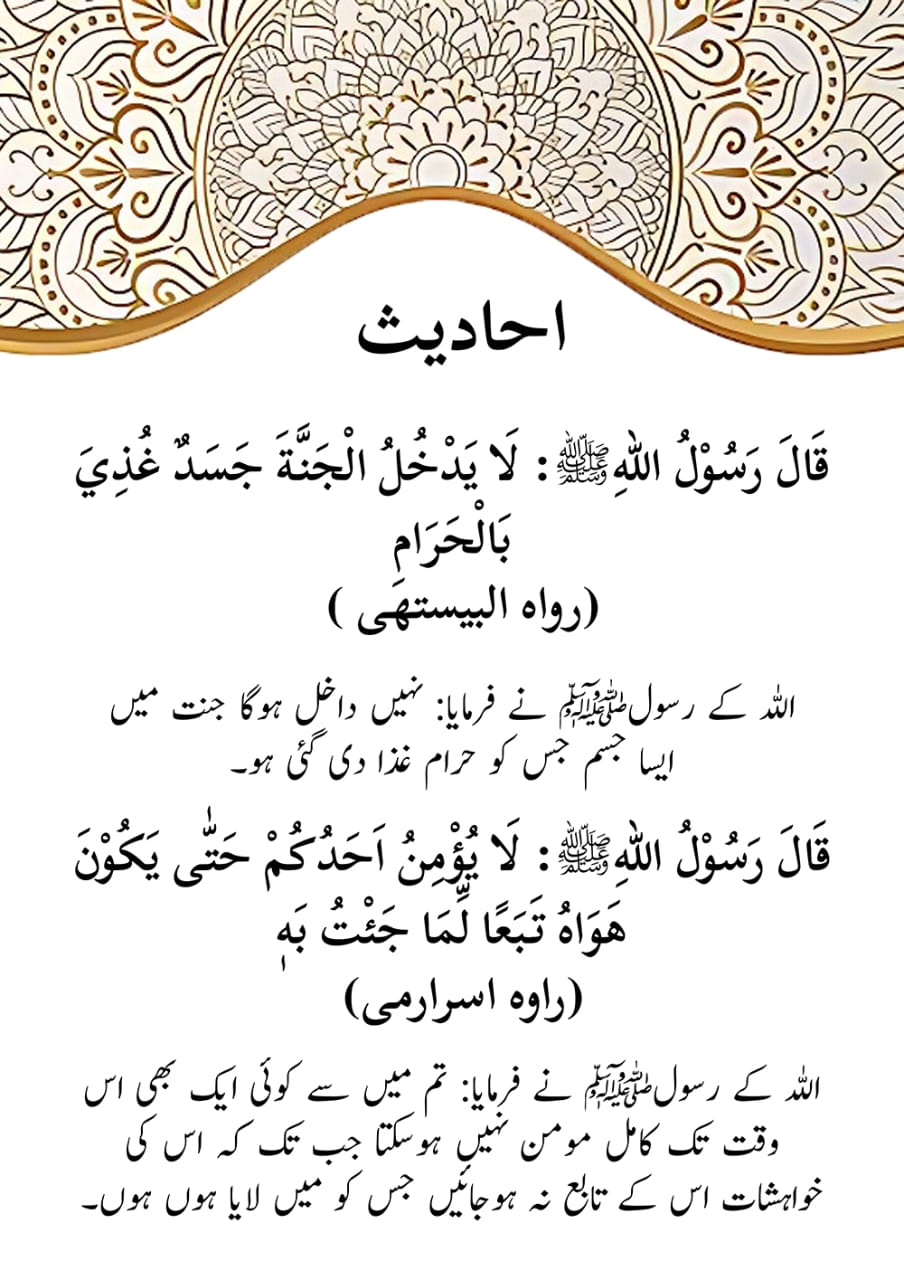 احادیث
قَالَ رَسُوْلُ اللهِﷺ: لَا يَدْخُلُ الْجَنَّةَ جَسَدٌ غُذِيَ
بَالْحَرَامِ
(رواه البيستهى )
اللہ کے رسولﷺ نے فرمایا: نہیں داخل ہوگا جنت میں
ایسا جسم جس کو حرام غذا دی گئی ہو۔
قَالَ رَسُوْلُ اللهِﷺ: لَا يُؤْمِنُ اَحَدُكُمْ حَتّٰى يَكُوْنَ
هَوَاهُ تَبَعًا لِّمَا جَئْتُ بَهٖ
(راوه اسرارمی)
اللہ کے رسولﷺ نے فرمایا: تم میں سے کوئی ایک بھی اس
وقت تک کامل مومن نہیں ہوسکتا جب تک کہ اس کی
خواہشات اس کے تابع نہ ہوجائیں جس کو میں لایا ہوں ہوں۔